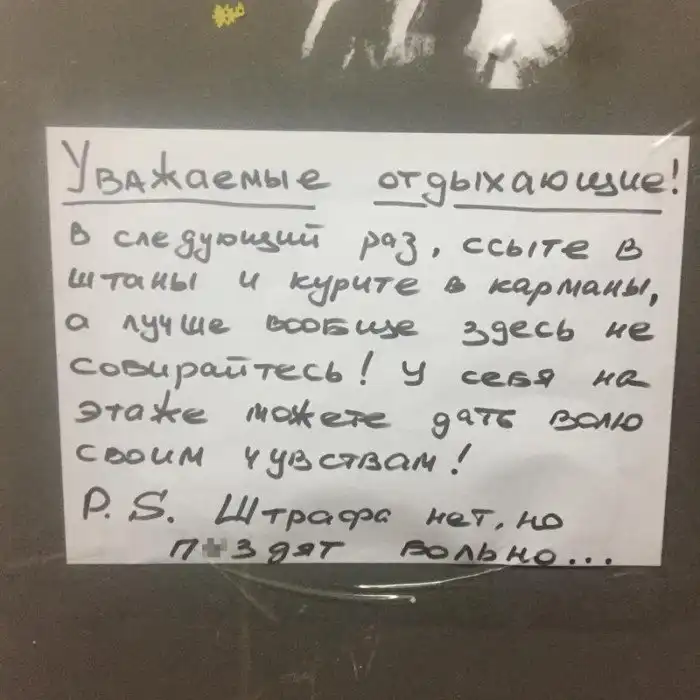 Уважаемые отдыхающие!
В следующий раз, ссыте в
штаны и курите в карманы,
а лучше вообще здесь не
собирайтесь! У себя на
этаже можете дать волю
своим чувствам!
P.S. Штрафа нет, но
п*здят больно...